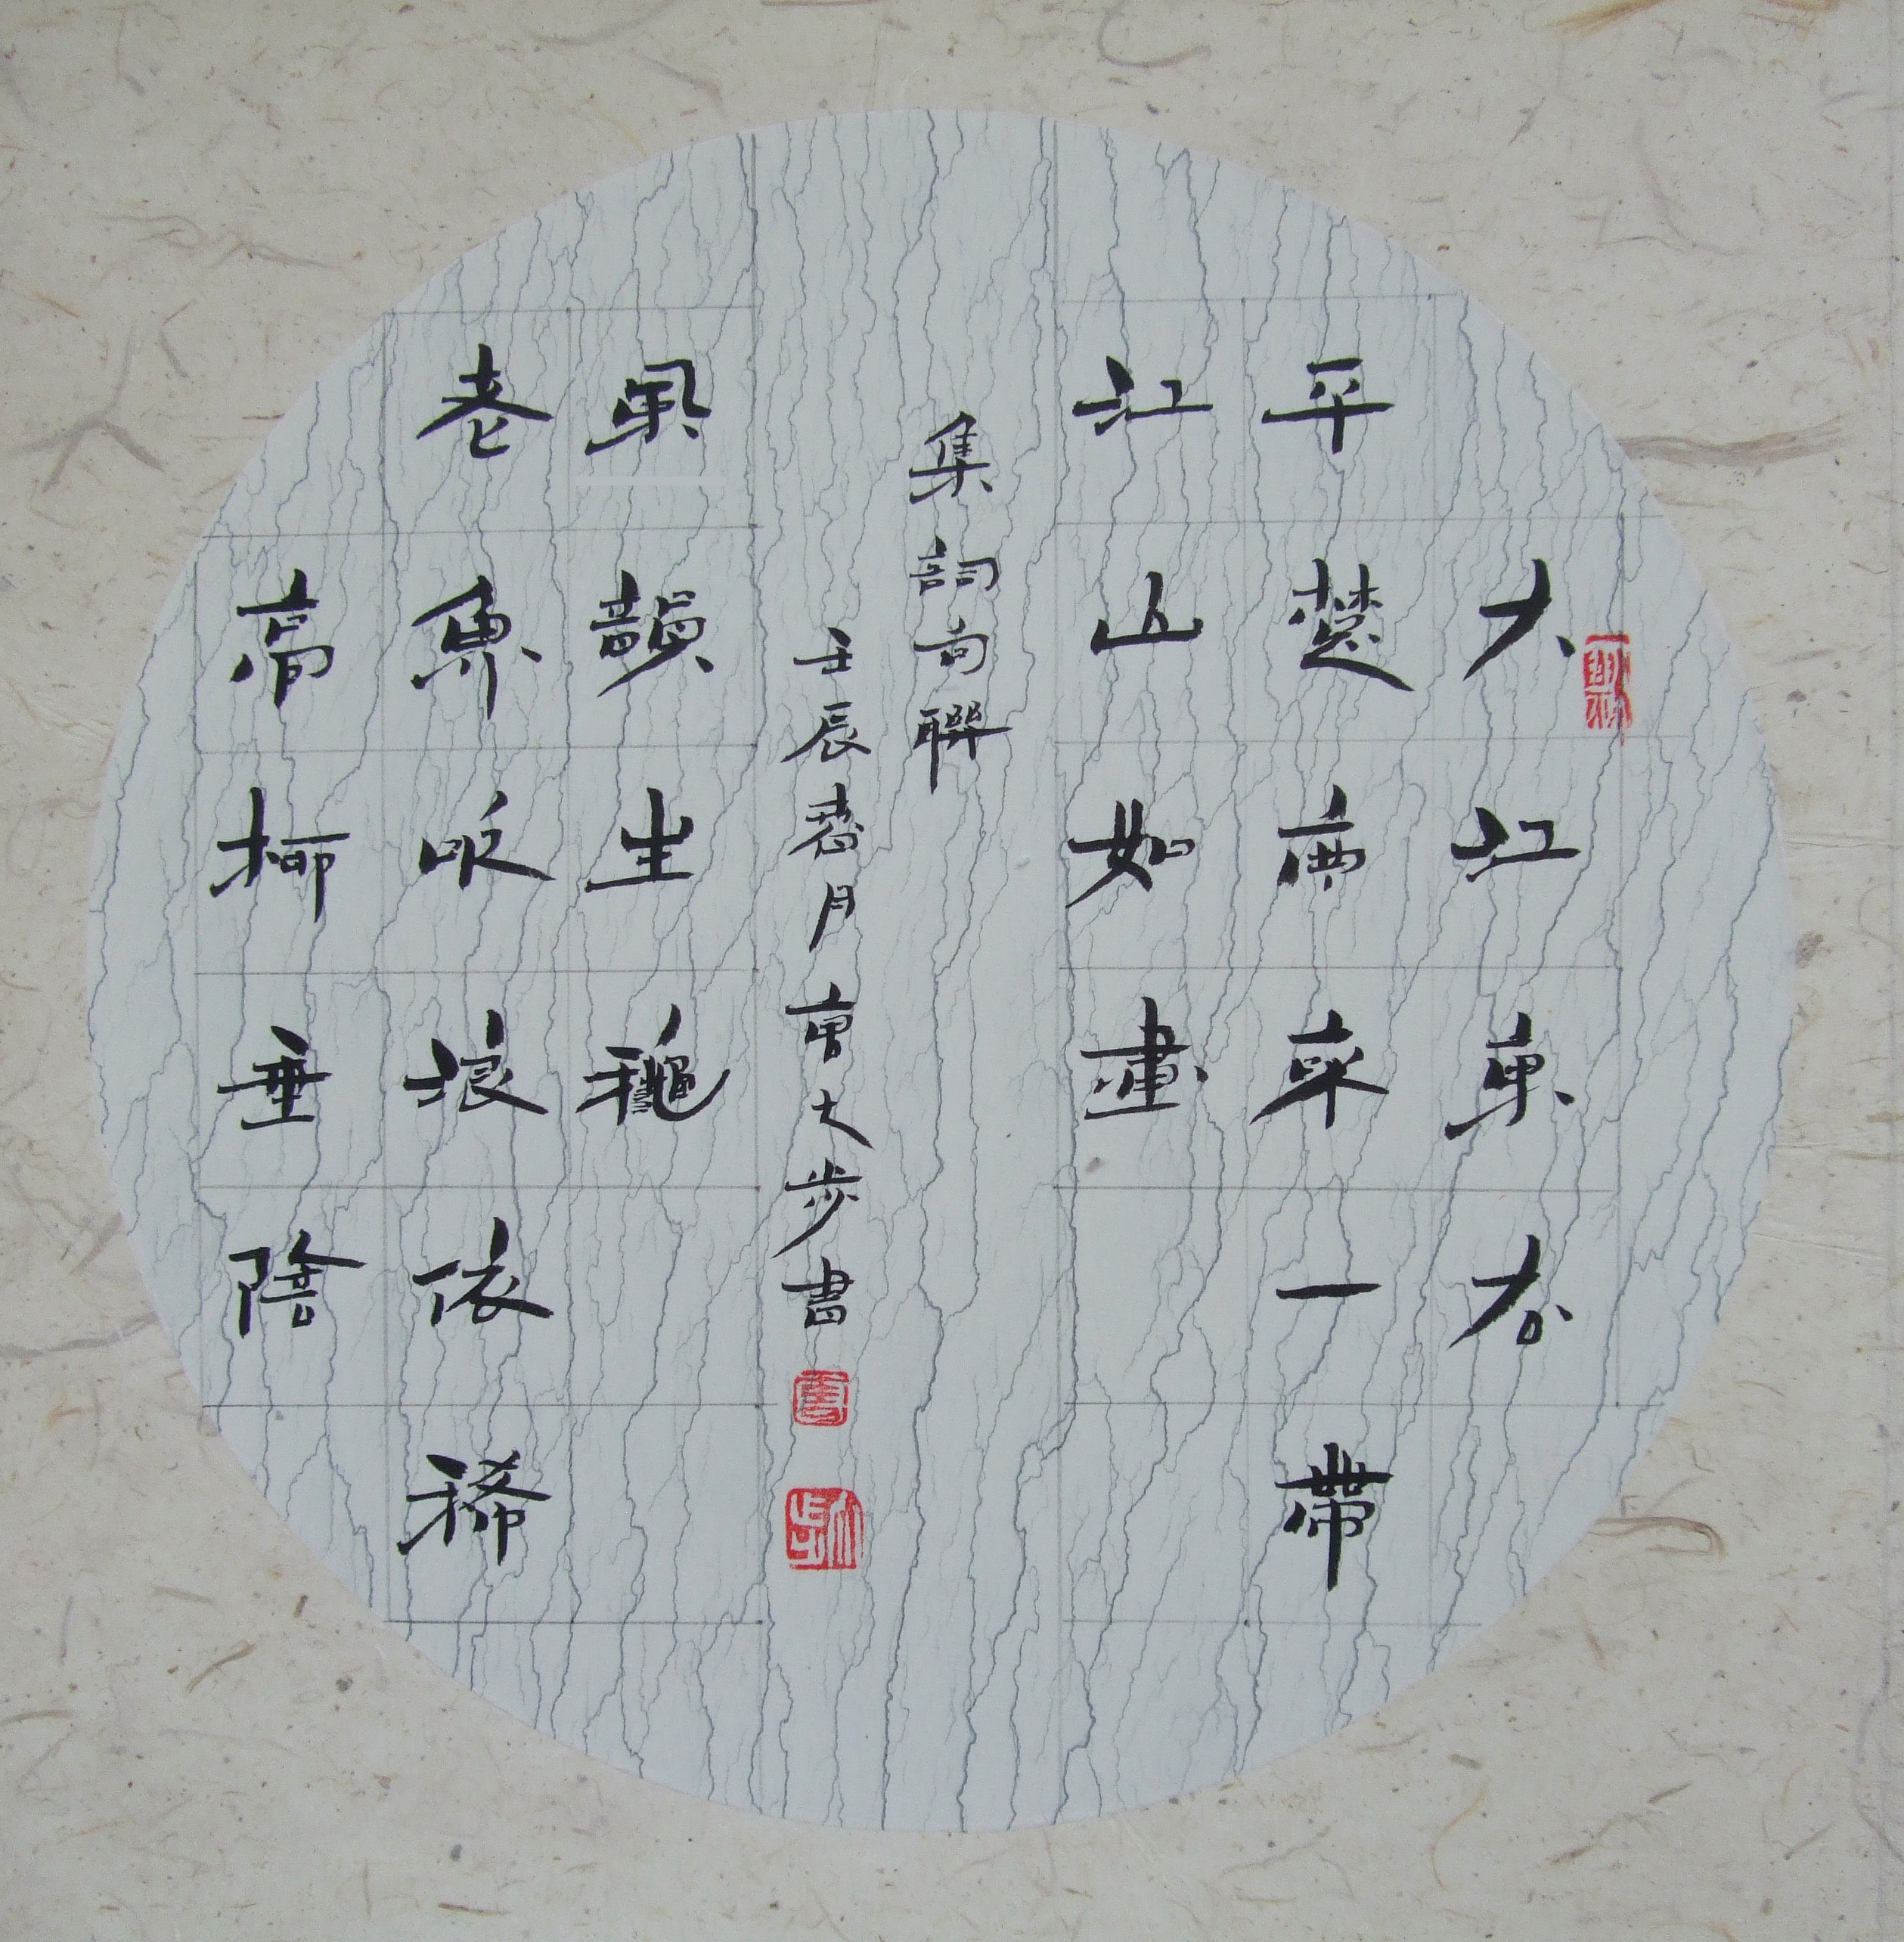 大江東去
平楚南來一帶
江山如畫
集詞句聯
壬辰春月曹大步書
風韻生龝
老魚吹浪依稀
高柳垂陰